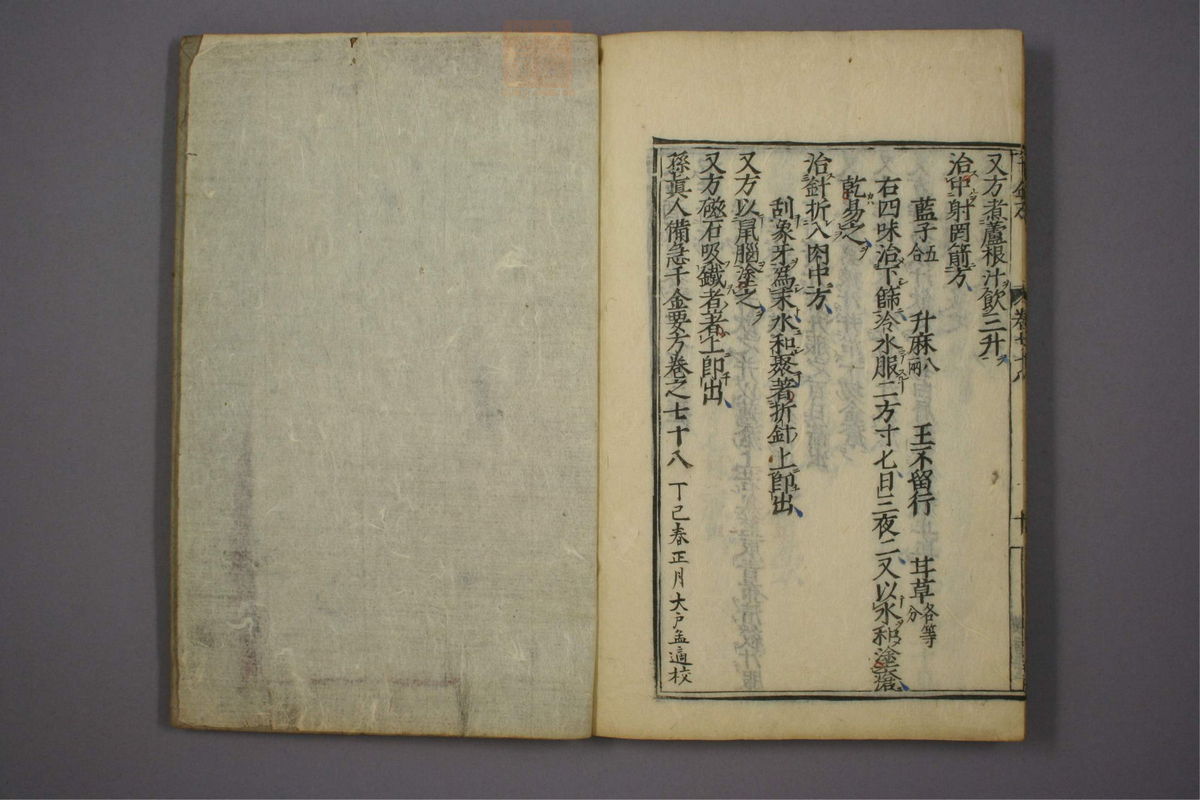 又方煮蘆根汁飲三升
治中射罔箭方
藍子五合 升麻八兩 王不留行 甘草各等分
右四味治下篩冷水服二方寸匕日三夜二又以水和塗瘡
乾易之
治針折入肉中方
刮象牙為末水和聚著折針上即出
又方以鼠腦塗之
又方磁石吸鐵者著上即出
孫真人備急千金要方卷之七十八 丁巳春正月大戶孟適校